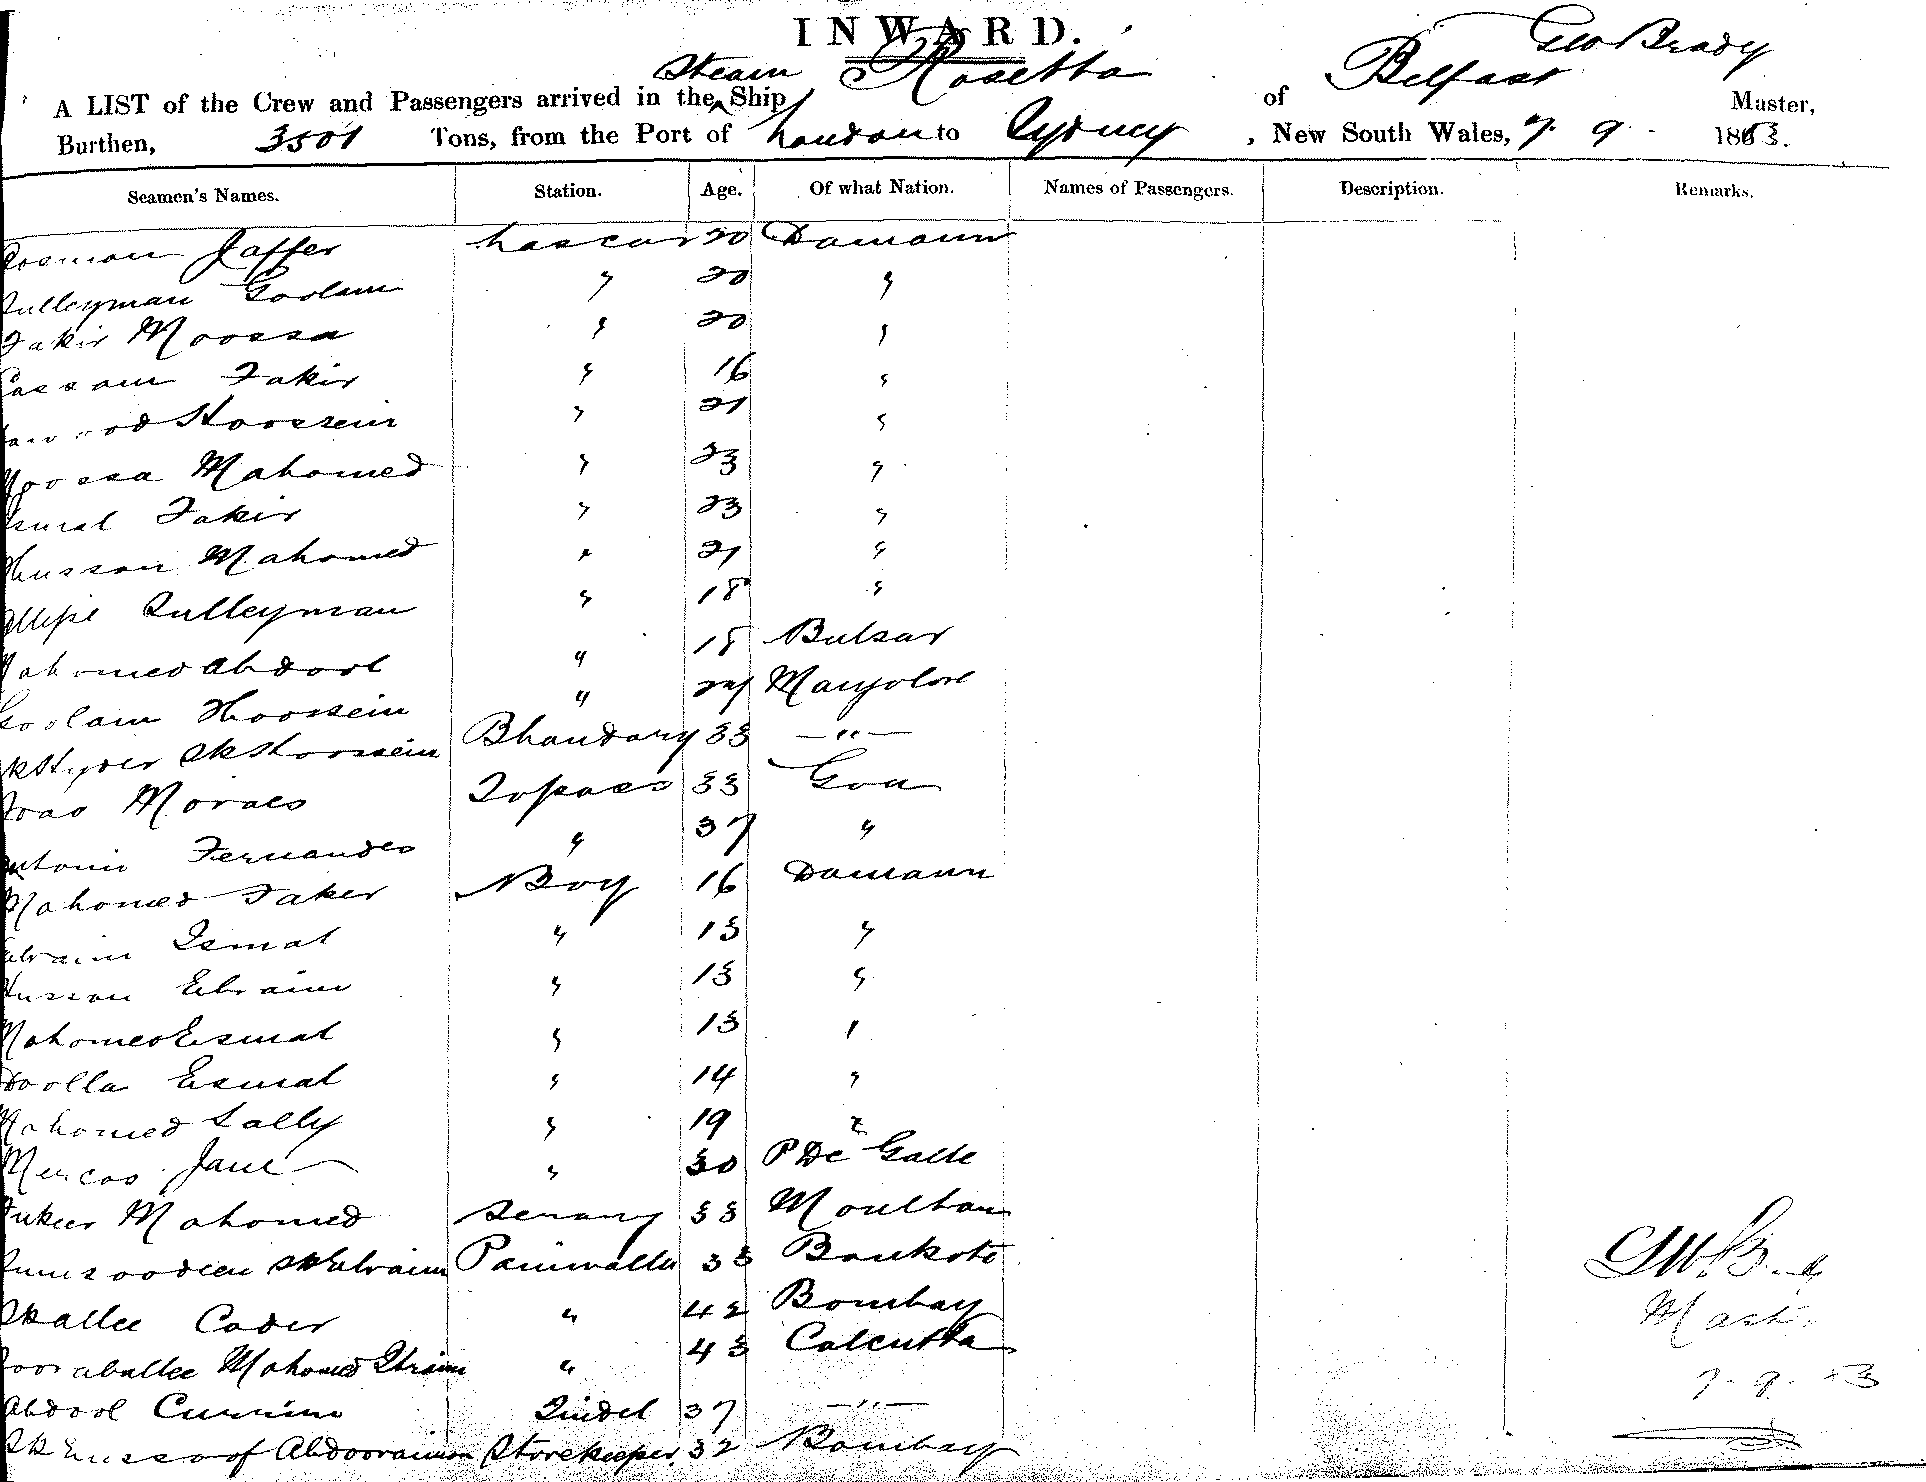 INWARD.
Geo Brady
A LIST of the Crew and Passengers arrived in the Steam Ship Rosetta of Belfast Master,
Burthen, 3501 Tons, from the Port of London to Sydney, New South Wales, 7. 9. 1883.
Seamen's Names. Station. Age. Of what Nation. Names of Passengers. Description. Remarks.
Jaffer Lascar 20 Damaun
Sulleyman Goolam " 20 "
Fakir Moossa " 20 "
Cassam Fakir " 16 "
Hoossein " 21 "
Moossa Mahomed " 23 "
Esmal Fakir " 23 "
Husson Mahomed " 21 "
Sulleyman " 18 "
Mahomed Abdool " 18 Bulsar
Goolam Hoossein " Mangolore
Sk Hyder Sk Hoossein Bhandary 33 — " —
Joao Moraes Topass 33 Goa
Antonio Fernandes " 37 "
Mahomed Faker Boy 16 Damaun
Ebraim Ismal " 13 "
Husson Ebraim " 13 "
Mahomed Esmal " 13 "
Doolla Esmal " 14 "
Mahomed Sally " 19 "
Marcos Jane " 30 P De Galle
Mahomed Serang 33 Moultan
Sk Ebraim Paniwalla 33 Bankote
Sk Allee Cader " 42 Bombay
Mahomed Ibraim " 43 Calcutta
Abdool Currim Tindel 37 — " —
Sk Eussoof Abdooraimon Storekeeper 32 Bombay
Mast.
7. 9. 83